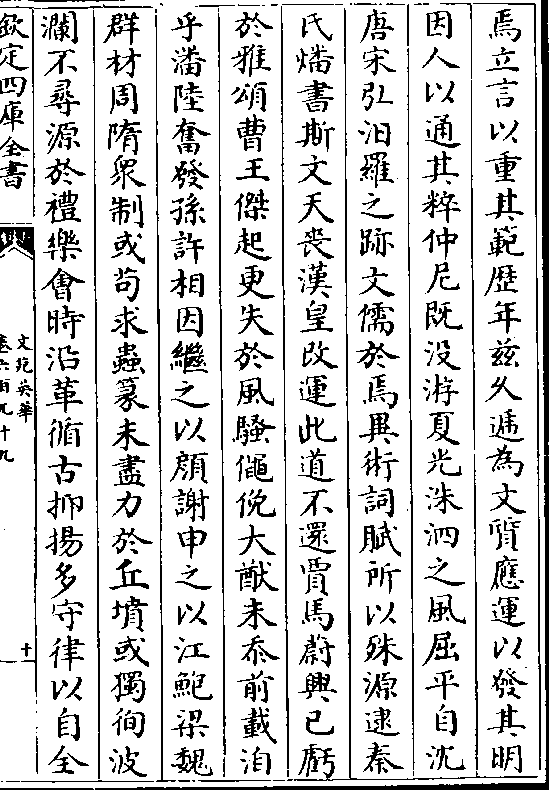 焉立言以重其範歴年兹久遞為文質應運以發其明
因人以通其粹仲尼既没游夏光洙泗之風屈平自沈
唐宋弘汨羅之跡文儒於焉異術詞賦所以殊源逮秦
氏燔書斯文天丧漢皇改運此道不還賈馬蔚興已虧
於雅頌曹王傑起更失於風騷僶俛大猷未忝前載洎
乎潘陸奮發孫許相因繼之以顔謝申之以江鮑梁魏
群材周隋衆制或苟求蟲篆未盡力於丘墳或獨徇波
瀾不尋源於禮樂會時沿革循古抑揚多守律以自全
欽定四庫全書
文苑英華
卷六百九十九
十